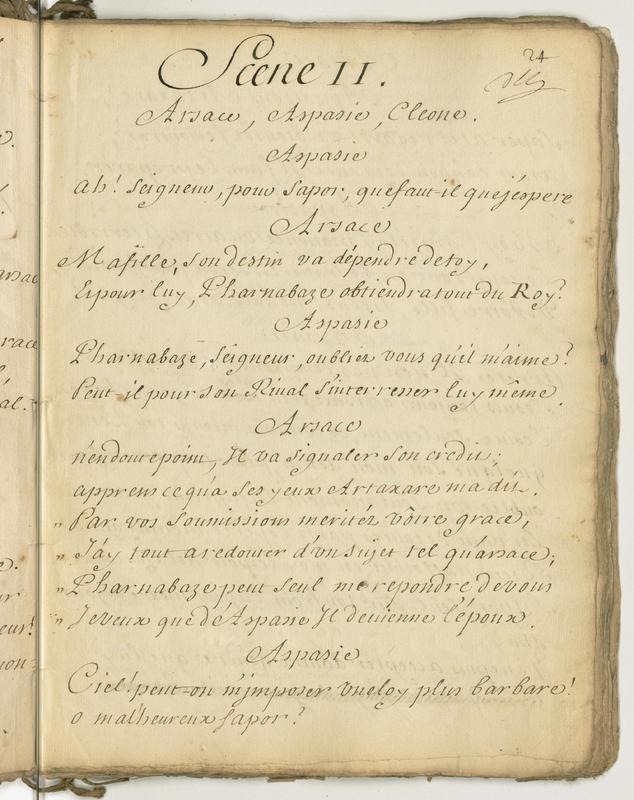 24
Scene II.
Arsace, Aspasie, Cleone.
Aspasie
Ah! Seigneur, pour Sapor, que faut-il que j'éspere
Arsace
Ma fille, son destin va dépendre de toy,
Et pour luy, Pharnabaze obtiendra tout du Roy.
Aspasie
Pharnabaze, Seigneur, oubliez vous qu'il m'aime?
Peut-il pour son Rival s'interresser luy même.
Arsace
n'en doute point, Il va signaler son credit;
apprens ce qu'a ses yeux Artaxare m'a dit.
„ Par vos soumissions meritéz vôtre grace,
„ J'ay tout a redouter d'un sujet tel qu'arsace;
„ Pharnabaze peut seul me repondre de vous
„ Je veux que d'Aspasie Il devienne l'époux.
Aspasie
Ciel! peut-on m'jmposer une loy plus barbare!
o malheureux sapor?
al.